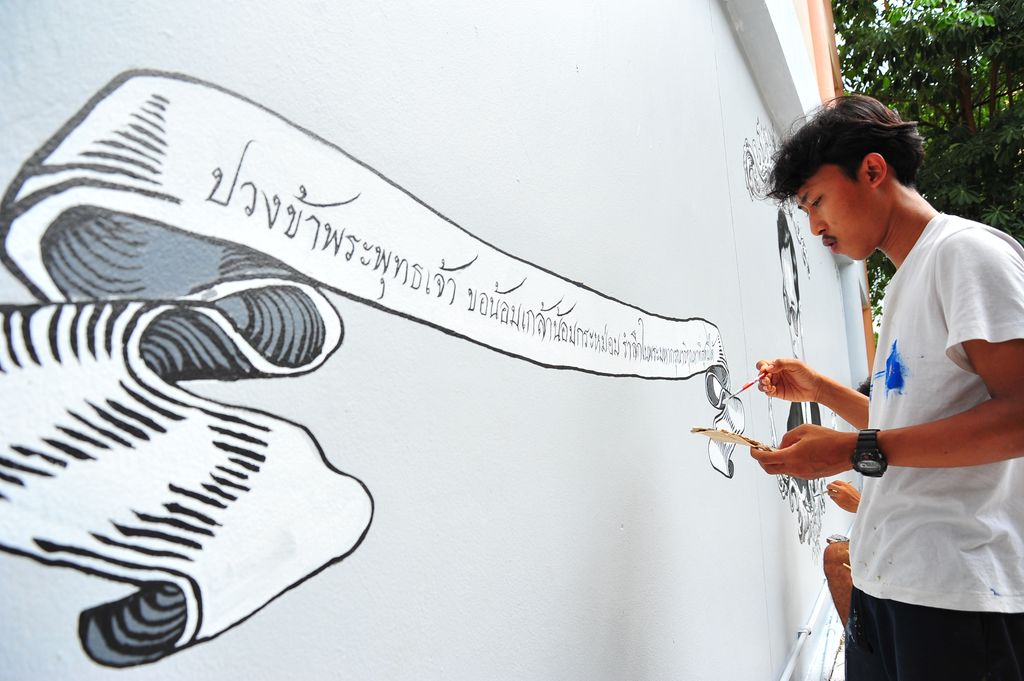 ปวงข้าพระพุทธเจ้า ขอน้อมเกล้าน้อมกระหม่อม รำลึกในพระมหากรุณาธิคุณ